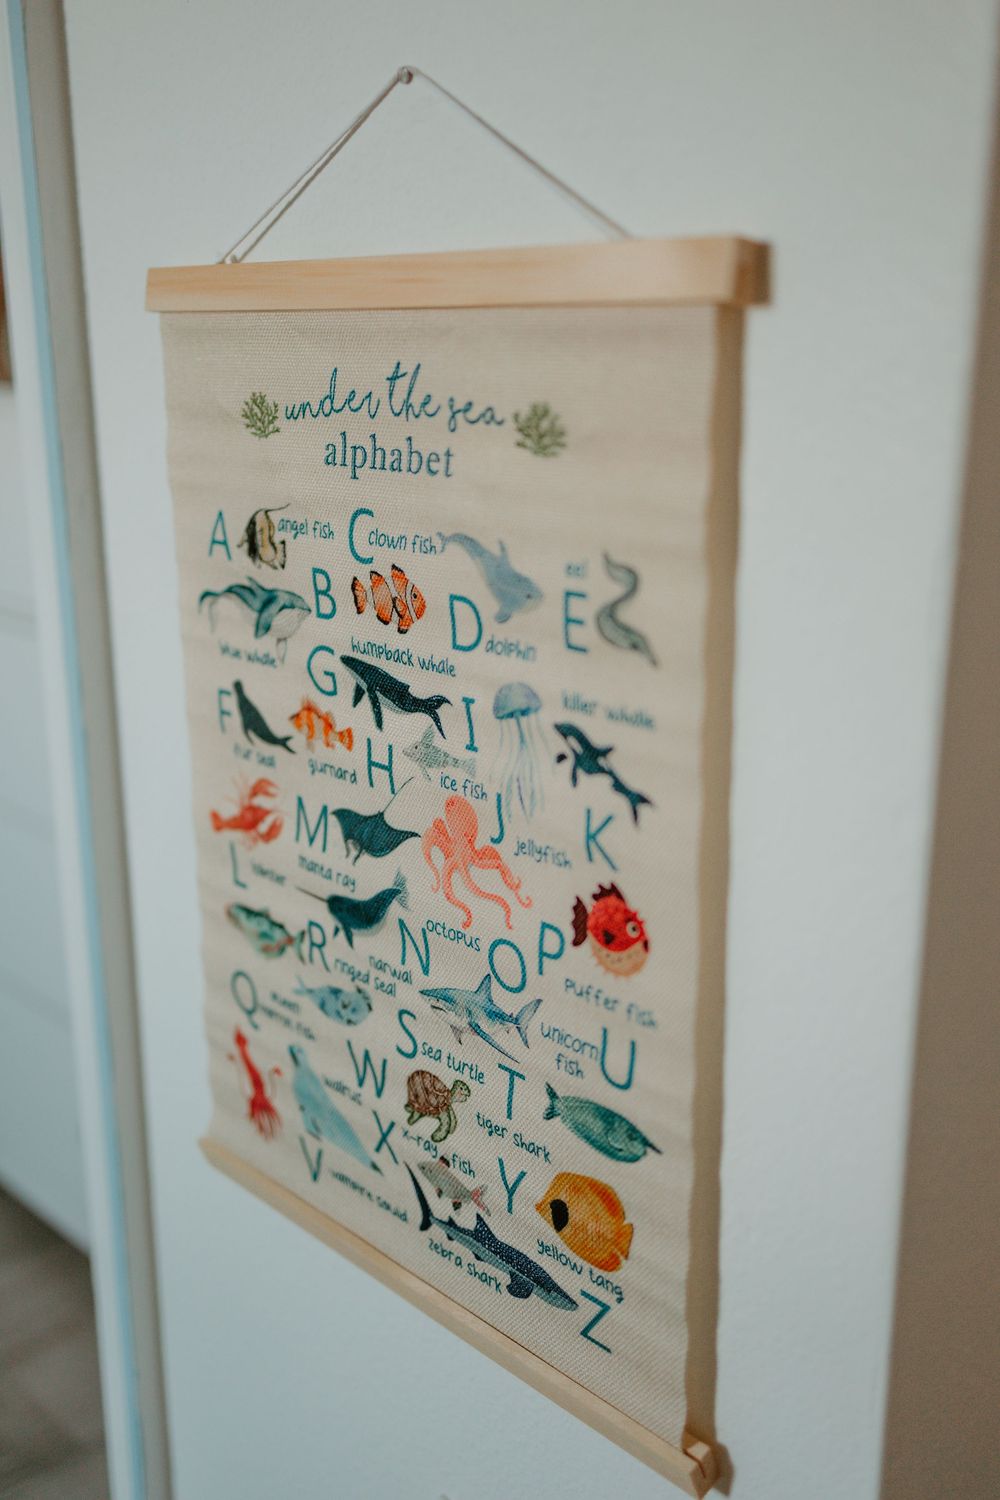 under the sea
alphabet
A
angel fish
C
clown fish
B
blue whale
D
dolphin
eel
E
G
humpback whale
F
fur seal
gurnard
H
I
ice fish
J
jellyfish
killer whale
K
L
lobster
M
manta ray
N
narwal
octopus
O
P
puffer fish
Q
R
ringed seal
S
sea turtle
T
tiger shark
unicorn
fish
U
V
vampire squid
W
walrus
X
x-ray fish
Y
yellow tang
zebra shark
Z